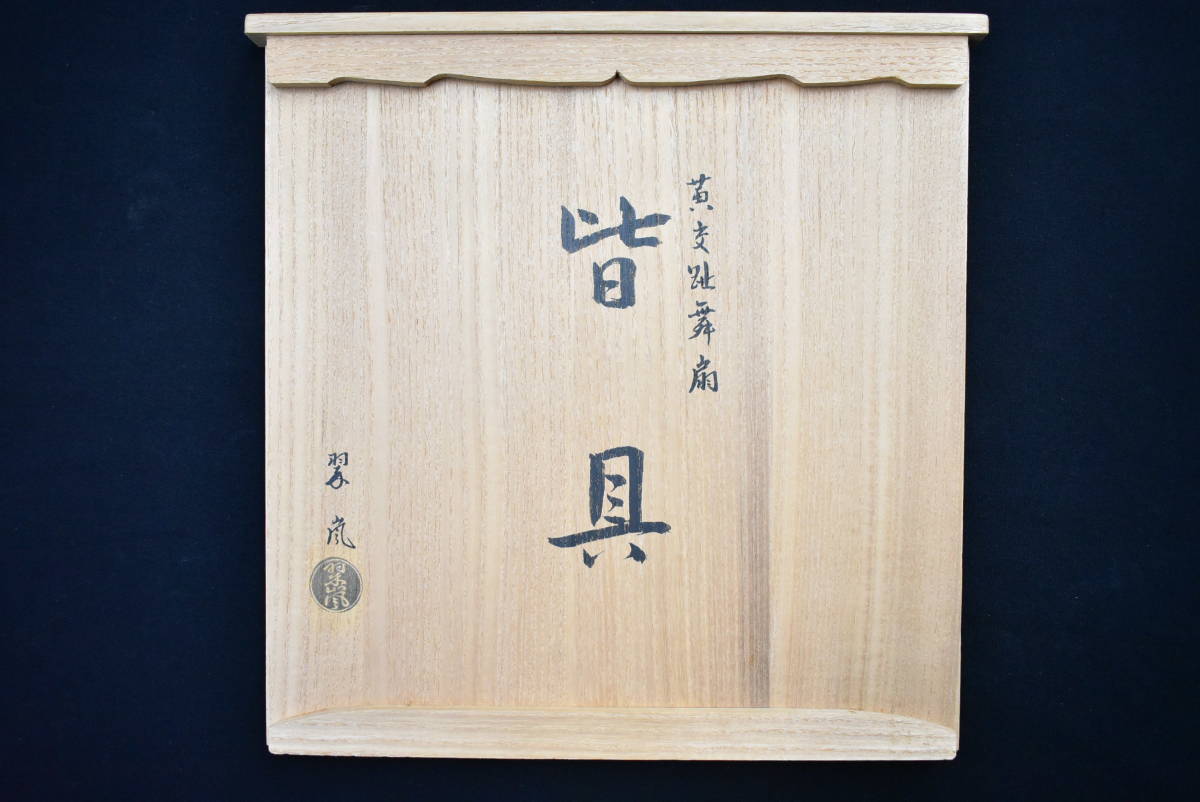 黄交趾舞扇
皆具
翠嵐
翠嵐